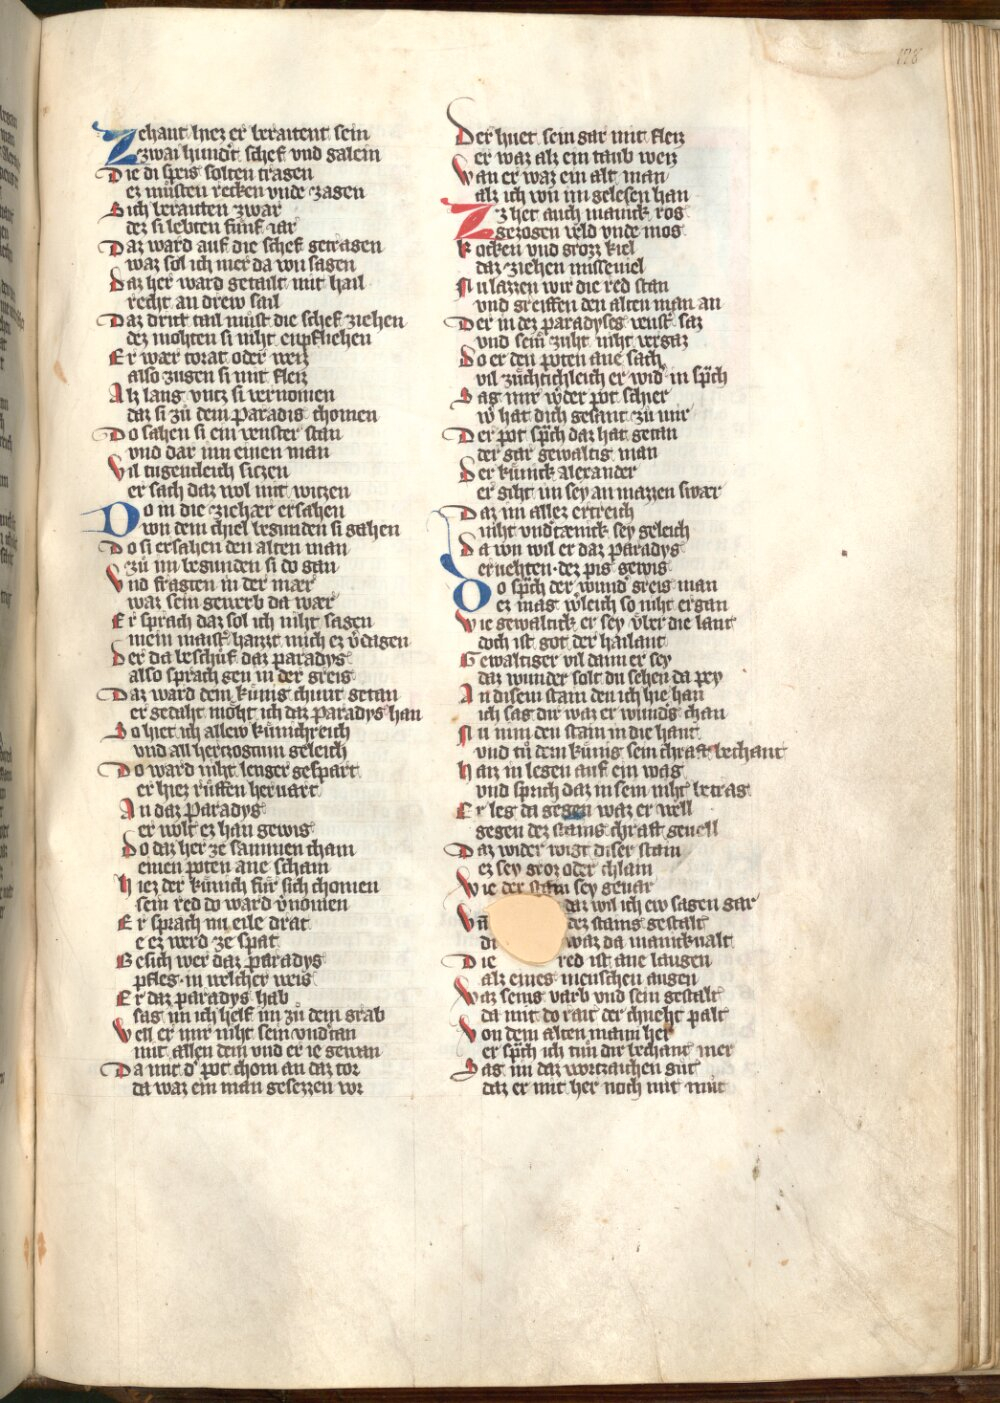 178
Zehant hiez er beraitent sein
zwai hundͤt schef vnd galein
Die di speis solten tragen
ez muͤsten recken vnde zagen
Sich berauten zwar
dez si lebten fuͤnf iar
Daz ward auf die schef getragen
waz sol ich mer da von sagen
Daz her ward getailt mit hail
recht an drew tail
Daz dritt tail muͤst die schef ziehen
dez mohten si niht enpfliehen
Er wær torat oder weiz
also zugen si mit fleiz
Alz lang vntz si vernomen
daz si zuͤ dem paradis chomen
Do sahen si ein venster stan
vnd dar inn einen man
Vil tugentleich siczen
er sach daz wol mit witzen
Do in die ziehær ersahen
von dem chiel begunden si gahen
Do si ersahen den alten man
zuͤ im begunden si do gan
Vnd fragten in der mær
waz sein gewerb da wær
Er sprach daz sol ich niht sagen
mein maistͤ haizzt mich ez vͤdagen
Der da beschuͤf daz paradys
also sprach gen in der greis
Daz ward dem kuͤnig chunt getan
er gedaht moͤht ich daz paradys han
So hiet ich allew kuͤnichreich
vnd all hertzogtum geleich
Do ward niht lenger gespart
er hiez ruͤffen hervart
An daz Paradys
er wolt ez han gewis
Do daz her ze sammen cham
einen poten ane scham
Hiez der kuͤnich fuͤr sich chomen
sein red do ward vͤnomen
Er sprach nu eile drat
e ez werd ze spat
Besich wer daz paradys
pfleg in welcher weis
Er daz paradys hab
sag im ich helf im zuͤ dem grab
Well er mir niht sein vndͤtan
mit allen dem vnd er ie gewan
Da mit dͤ pot chom an daz tor
da waz ein man gesezzen vor
Der huet sein gar mit fleiz
er waz alz ein taub weiz
Wan er waz ein alt man
alz ich von im gelesen han
Ez her auch manick ros
gezogen veld vnde mos
Kocken vnd grozz kiel
daz ziehen misseviel
Nu lazzen wir die red stan
vnd greiffen den alten man an
Der in dez paradyses venstͤ saz
vnd sein zuht niht vergaz
Do er den poten ane sach
vil zuͤchtichleich er widͤ in spͤch
Sag mir wͤder pot schier
wͤ hat dich gesant zuͤ mir
Der pot spͤch daz hat getan
der gar gewaltig man
Der kuͤnick Alexander
er giht im sey an mazzen swær
Daz im allez ertreich
niht vndͤtænick sey geleich
Da von wil er daz paradys
ervehten dez pis gewis
Do spͤch der wundͤ greis man
ez mag vͤleich so niht ergan
Wie gewaltick er sey vber die lant
doch ist got der hailant
Gewaltiger vil dann er sey
daz wunder solt du sehen da pey
An disem stain den ich hie han
ich sag dir waz er wundͤs chan
Nu nim den stain in die hant
vnd tuͤ dem kuͤnig sein chraft bechant
Haiz in legen auf ein wag
vnd sprich daz in sein niht betrag
Er leg da gegen waz er well
gegen dez stains chraft gevell
Daz wider wigt diser stain
ez sey groz oder chlain
Wie der stain sey gevar
daz wil ich ew sagen gar
Vn dez stains gestalt
di waz da manickvalt
Die red ist ane laugen
alz eines menschen augen
Waz seins varb vnd sein gestalt
da mit do rait der chneht palt
Von dem alten mann her
er spͤch ich tun dir bechant mer
Sag im daz wortzaichen guͤt
daz er mit her noch mit muͤt